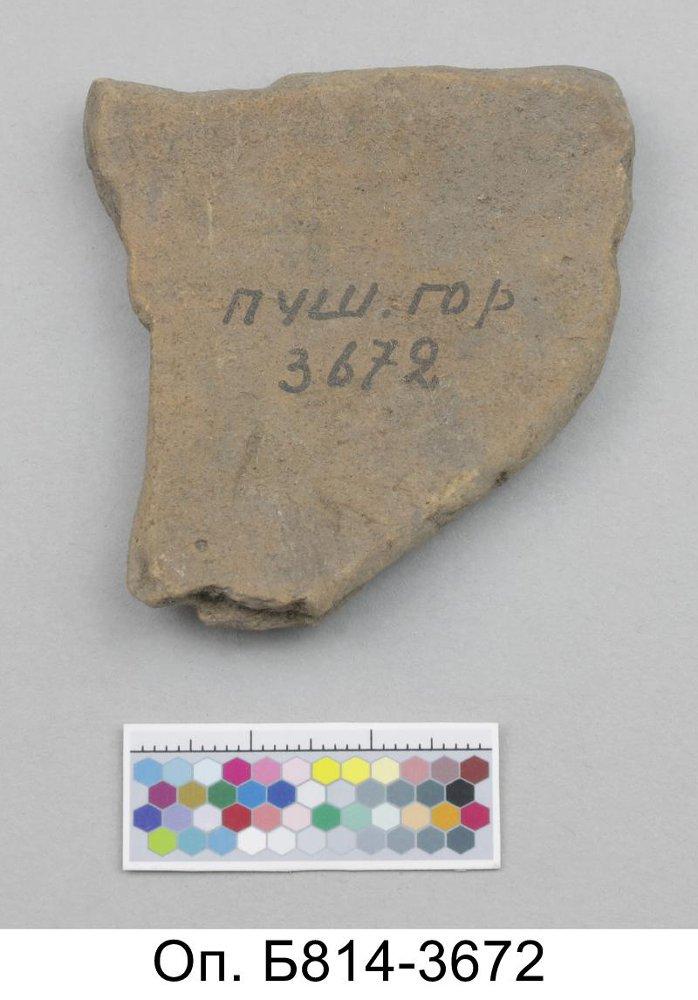 ПУШ. ГОР
3672
Оп. Б814-3672